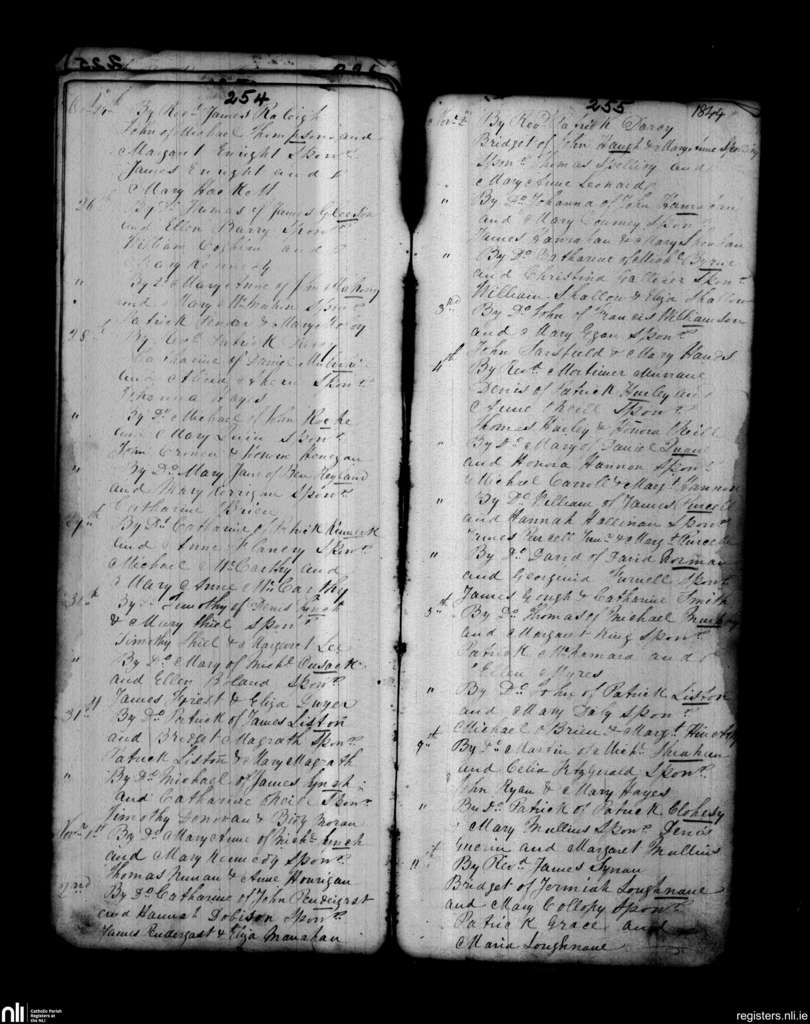 254
By Revd James Raleigh
John of Michael Thompson and
Margaret Enright Sponrs
James Enright and
Mary Hackett
26th By Do Thomas of James
and Ellen Barry Sponrs
William and
Mary Kennedy
" By Do Mary Anne of Jno Mahony
and Mary McMahon Sponrs
Patrick & Mary
28th By Revd Patrick
Catharine of Daniel
and Sponrs
Johanna Hayes
" By Do Michael of John Roche
and Mary Quin Sponrs
John Cronin & Honora Honegan
" By Do Mary Jane of Ben
and Mary Kerrigan Sponrs
Catharine O'Brien
29th By Do Catharine of Patrick
and Anne Flanery Sponrs
Michael McCarthy and
Mary Anne McCarthy
30th By Do Timothy of Denis Lynch
& Mary Shiel Sponrs
Timothy Shiel & Margaret Lee
" By Do Mary of Michl Cusack
and Ellen Boland Sponrs
James Priest & Eliza Dwyer
31st By Do Patrick of James Liston
and Bridget Magrath Sponrs
Patrick Liston & Mary Magrath
" By Do Michael of James Lynch
and Catharine Sheil Sponrs
Timothy Donovan & Bidy Moran
Novr 1st By Do Mary Anne of Michl Lynch
and Mary Kennedy Sponrs
Thomas Nunan & Anne Hourigan
2nd By Do Catharine of John Pendergast
and Hannah Dobison Sponrs
James Pendergast & Eliza Manahan
255
1844
Novr 2 By Revd Patrick Darcy
Bridget of John Haugh & Mary Anne
Sponrs Thomas and
Mary Anne Leonard
" By Do Johanna of John Hanrahan
and Mary Sponrs
James Hanrahan & Mary Sheehan
" By Do Catharine of Michl Byrne
and Christina Sponrs
William Shallow & Eliza Shallow
3rd By Do John of Francis Williamson
and Mary Egan Sponrs
John Sarsfield & Mary Hands
4th By Revd Mortimer
Denis of Patrick Hurley and
Anne Sheil Sponrs
Thomas Hurley & Honora Sheil
" By Do Mary of Daniel
and Honora Hannon Sponrs
Michael Carroll & Margt Hannon
" By Do William of James Purcell
and Hannah Hallinan Sponrs
James Purcell Junr & Margt Purcell
" By Do David of David Gorman
and Georgina Furnell Sponrs
James Gough & Catharine Smith
5th By Do Thomas of Michael Murphy
and Margaret King Sponrs
Patrick and
Ellen Myres
" By Do John of Patrick Liston
and Mary Daly Sponrs
Michael O'Brien & Margt
7th By Do Martin of Michl Sheahan
and Celia Fitzgerald Sponrs
John Ryan & Mary Hayes
" By Do Patrick of Patrick Clohesy
Mary Mullins Sponrs Denis
Guerin and Margaret Mullins
" By Revd James Synan
Bridget of Jermiah Loughnane
and Mary Collopy Sponrs
Patrick Grace and
Maria Loughnane
nli
Catholic Parish
Registers at
the NLI
registers.nli.ie